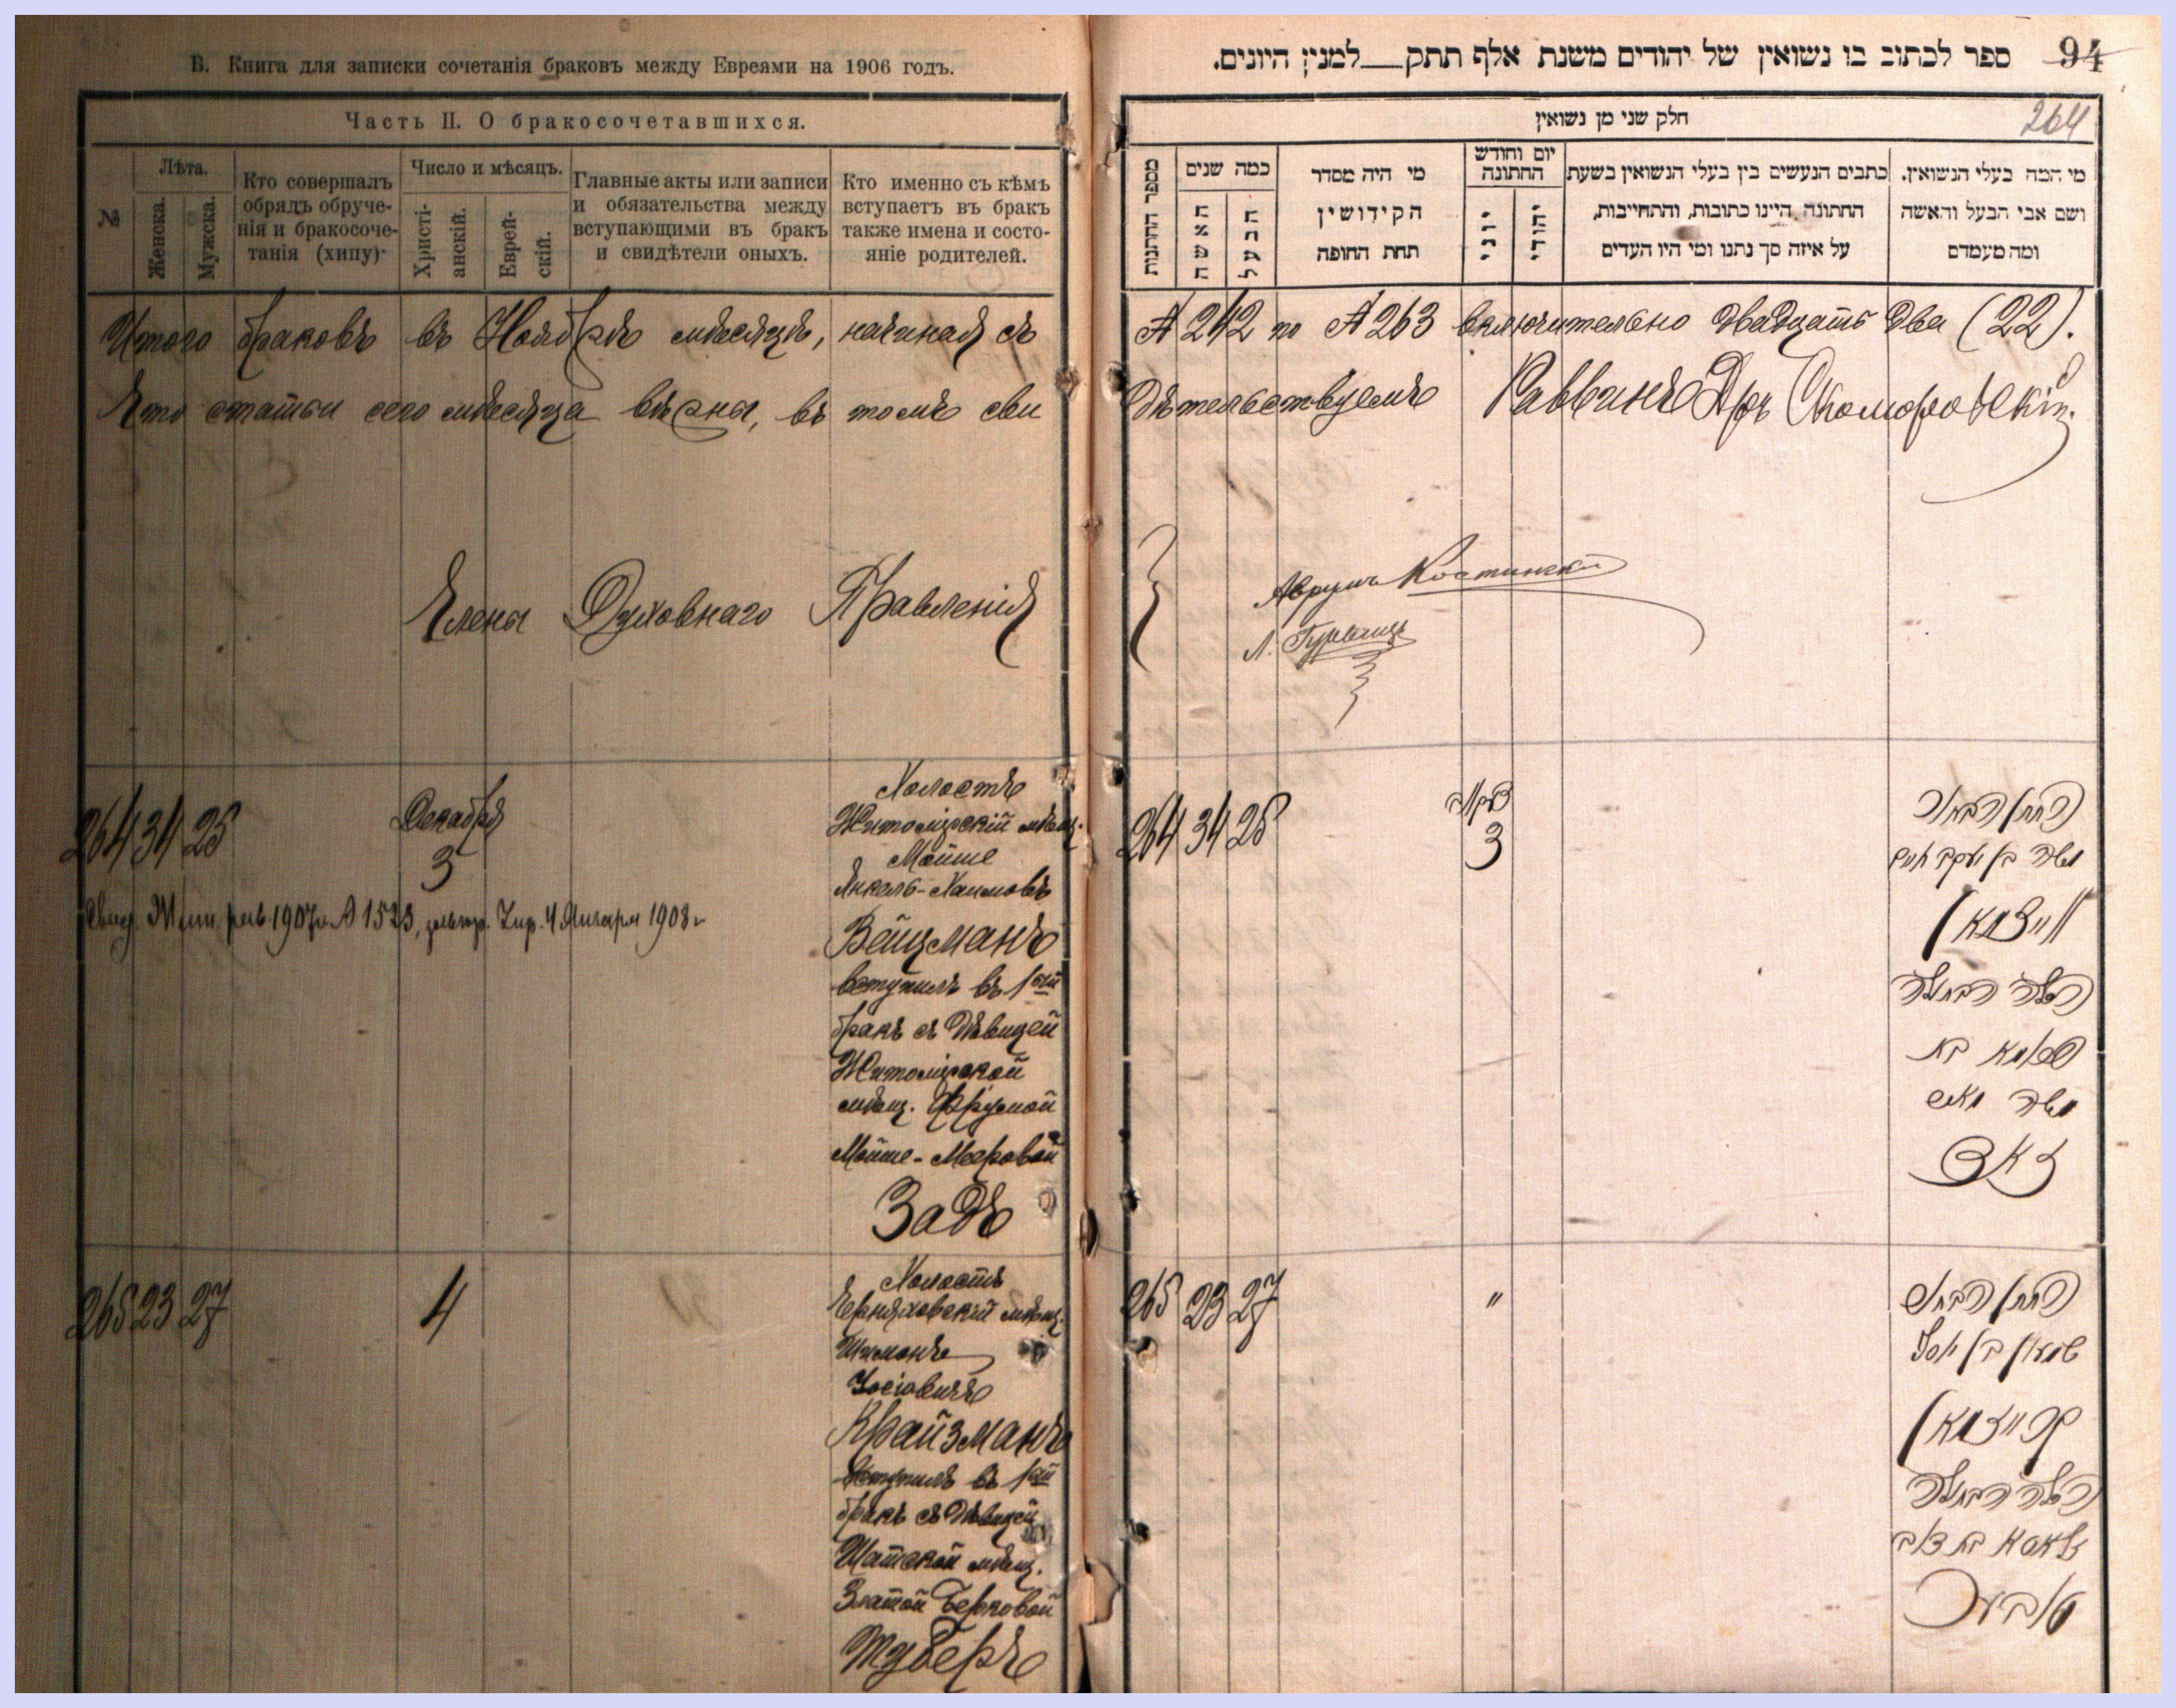 В. Книга для записки сочетанія браковъ между Евреями на 1906 годъ.
Часть II. О бракосочетавшихся.
№
Лѣта.
Женска.
Мужска.
Кто совершалъ
обрядъ обруче-
нія и бракосоче-
танія (хипу)
Число и мѣсяцъ.
Христі-
анскій.
Еврей-
скій.
Главные акты или записи
и обязательства между
вступающими въ бракъ
и свидѣтели оныхъ.
Кто именно съ кѣмъ
вступаетъ въ бракъ
также имена и состо-
яніе родителей.
Итого браковъ въ Ноябрѣ мѣсяцѣ, начиная съ
Что статьи сего мѣсяца вѣрны, въ томъ сви
Члены Духовнаго Правленія
264 34 25
Декабря
3
Свид. 1907 № 1523, 4 Января 1908 г
Холостъ
Житомірскій мѣщ.
Мойше
Янкель-Хаимовъ
Вейцманъ
вступилъ въ 1ый
бракъ съ дѣвицей
Житомірской
мѣщ. Фрумой
Мойше-Мееровой
Задъ
265 23 27
4
Холостъ
Черняховскій мѣщ.
Шимонъ
Іосіовичъ
Крайзманъ
вступилъ въ 1ый
бракъ съ дѣвицей
мѣщ.
Златой Берковой
Туберъ
94
ספר לכתוב בו נשואין של יהודים משנת אלף תתק__למנין היונים.
264
חלק שני מן נשואין
מספר החתונות
כמה שנים
האשה
הבעל
מי היה מסדר
הקידושין
תחת החופה
יום וחודש
החתונה
יוני
יהודי
כתבים הנעשים בין בעלי הנשואין בשעת
החתונה היינו כתובות, והתחייבות,
על איזה סך נתנו ומי היו העדים
מי המה בעלי הנשואין.
ושם אבי הבעל והאשה
ומה מעמדם
№ 242 по № 263 включительно двадцать два (22).
дѣтельствуемъ Раввинъ Д-ръ Скоморовскій.
Аврумъ Костинскій
Л. Гурвицъ
264 34 25
3
החתן הבחור
משה בן יעקב חיים
ווייצמאן
הכלה הבתולה
פרומא בת
משה מאיר
זאד
265 23 27
"
החתן הבחור
שמעון בן יוסף
קרייזמאן
הכלה הבתולה
זלאטא בת דוב
טובער